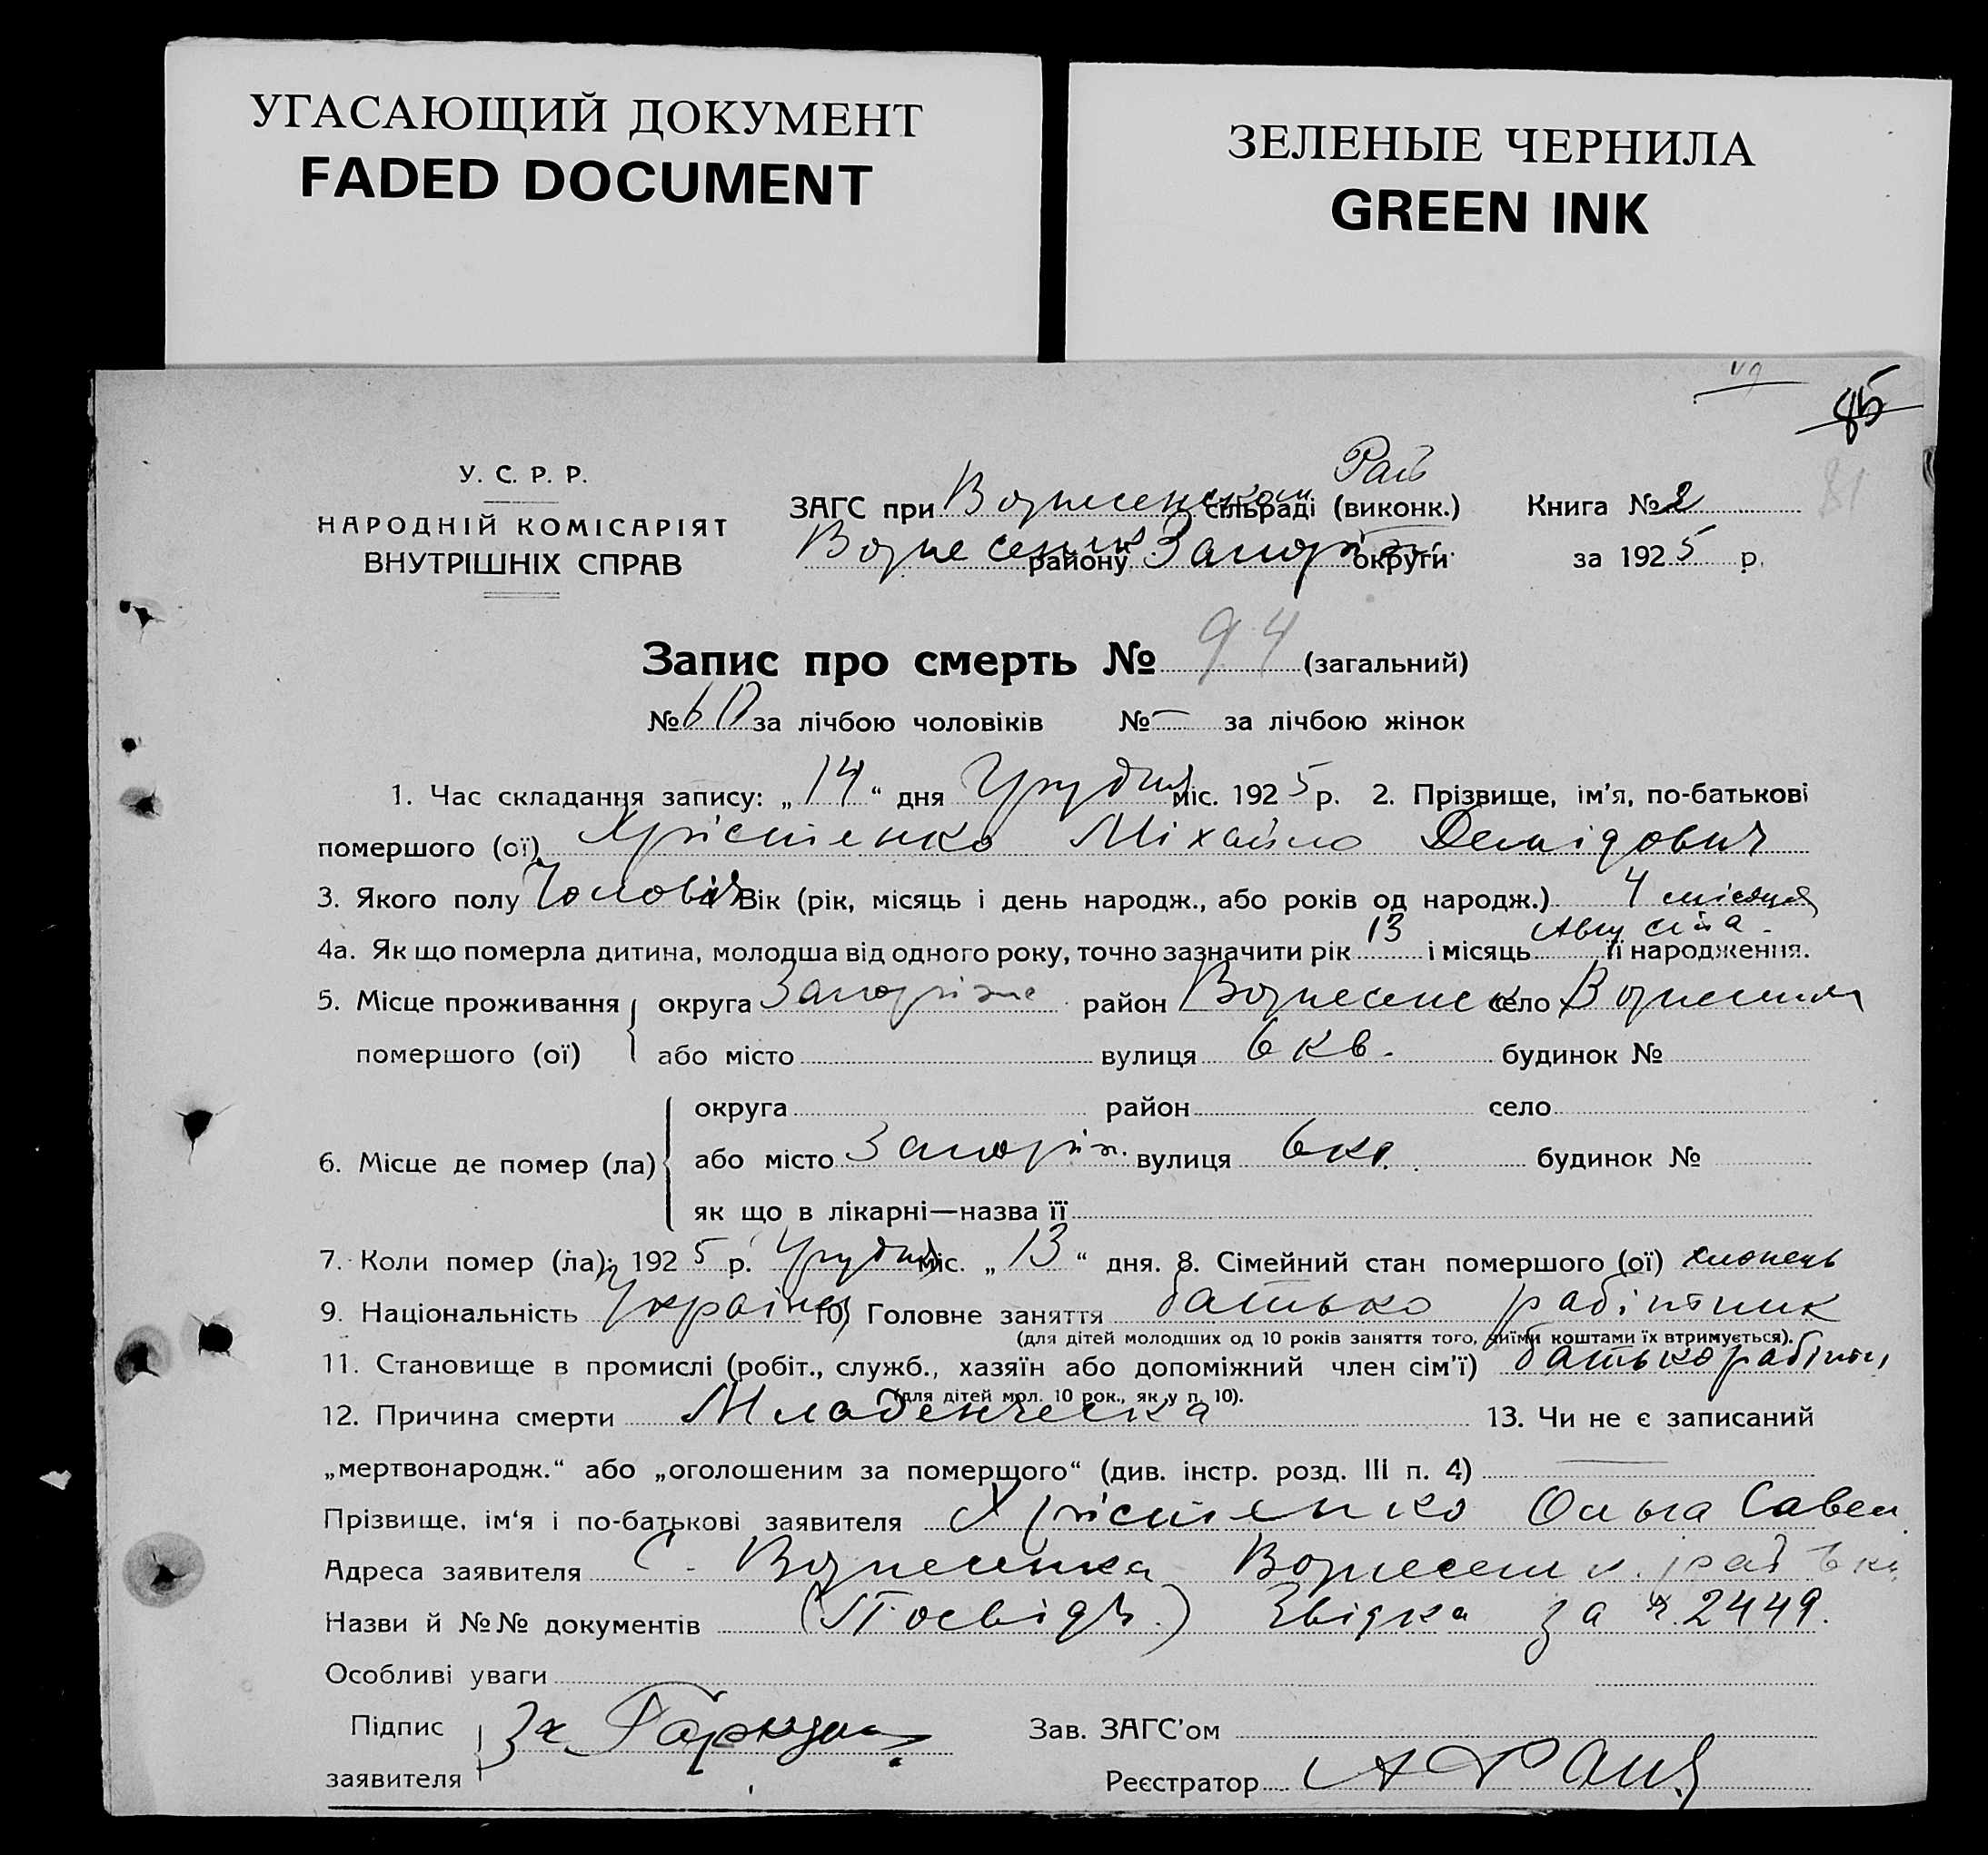 УГАСАЮЩИЙ ДОКУМЕНТ
FADED DOCUMENT
ЗЕЛЕНЫЕ ЧЕРНИЛА
GREEN INK
85
81
У. С. Р. Р.
НАРОДНІЙ КОМІСАРІЯТ
ВНУТРІШНІХ СПРАВ
Рай
ЗАГС при Вознесенском сільраді (виконк.) Книга № 2
Вознесенськ району Запоріж. округи за 1925 р.
Запис про смерть № 94 (загальний)
№ 60 за лічбою чоловіків № — за лічбою жінок
1. Час складання запису: „14“ дня Грудня міс. 1925 р. 2. Прізвище, ім’я, по-батькові
помершого (ої) Хрістенко Міхайло Демідович
3. Якого полу Чоловіч 4 Вік (рік, місяць і день народж., або років од народж.) 4 місяця
4а. Як що померла дитина, молодша від одного року, точно зазначити рік 13 і місяць Августа її народження.
5. Місце проживання округа Запоріжже район Вознесенськ село Вознесенка
помершого (ої) або місто вулиця 6 кв. будинок №
округа район село
6. Місце де помер (ла) або місто Запоріж. вулиця 6 кв. будинок №
як що в лікарні—назва її
7. Коли помер (ла): 1925 р. Грудня міс. „13“ дня. 8. Сімейний стан помершого (ої) хлопець
9. Національність Українец 10. Головне заняття батько робітник
(для дітей молодших од 10 років заняття того, чиїми коштами їх втримується).
11. Становище в промислі (робіт., служб., хазяїн або допоміжний член сім’ї) батько робітн
(для дітей мол. 10 рок., як у п. 10).
12. Причина смерти Младенческа 13. Чи не є записаний
„мертвонародж.“ або „оголошеним за померщого“ (див. інстр. розд. III п. 4) —
Прізвище, ім‘я і по-батькові заявителя Хрістенко Ольга Савел
Адреса заявителя С. Вознесенка Вознесенк. рай 6 кв
Назви й №№ документів (Посвідч.) Звідка за № 2449.
Особливі уваги
Підпис
заявителя
Зав. ЗАГС’ом
Реєстратор